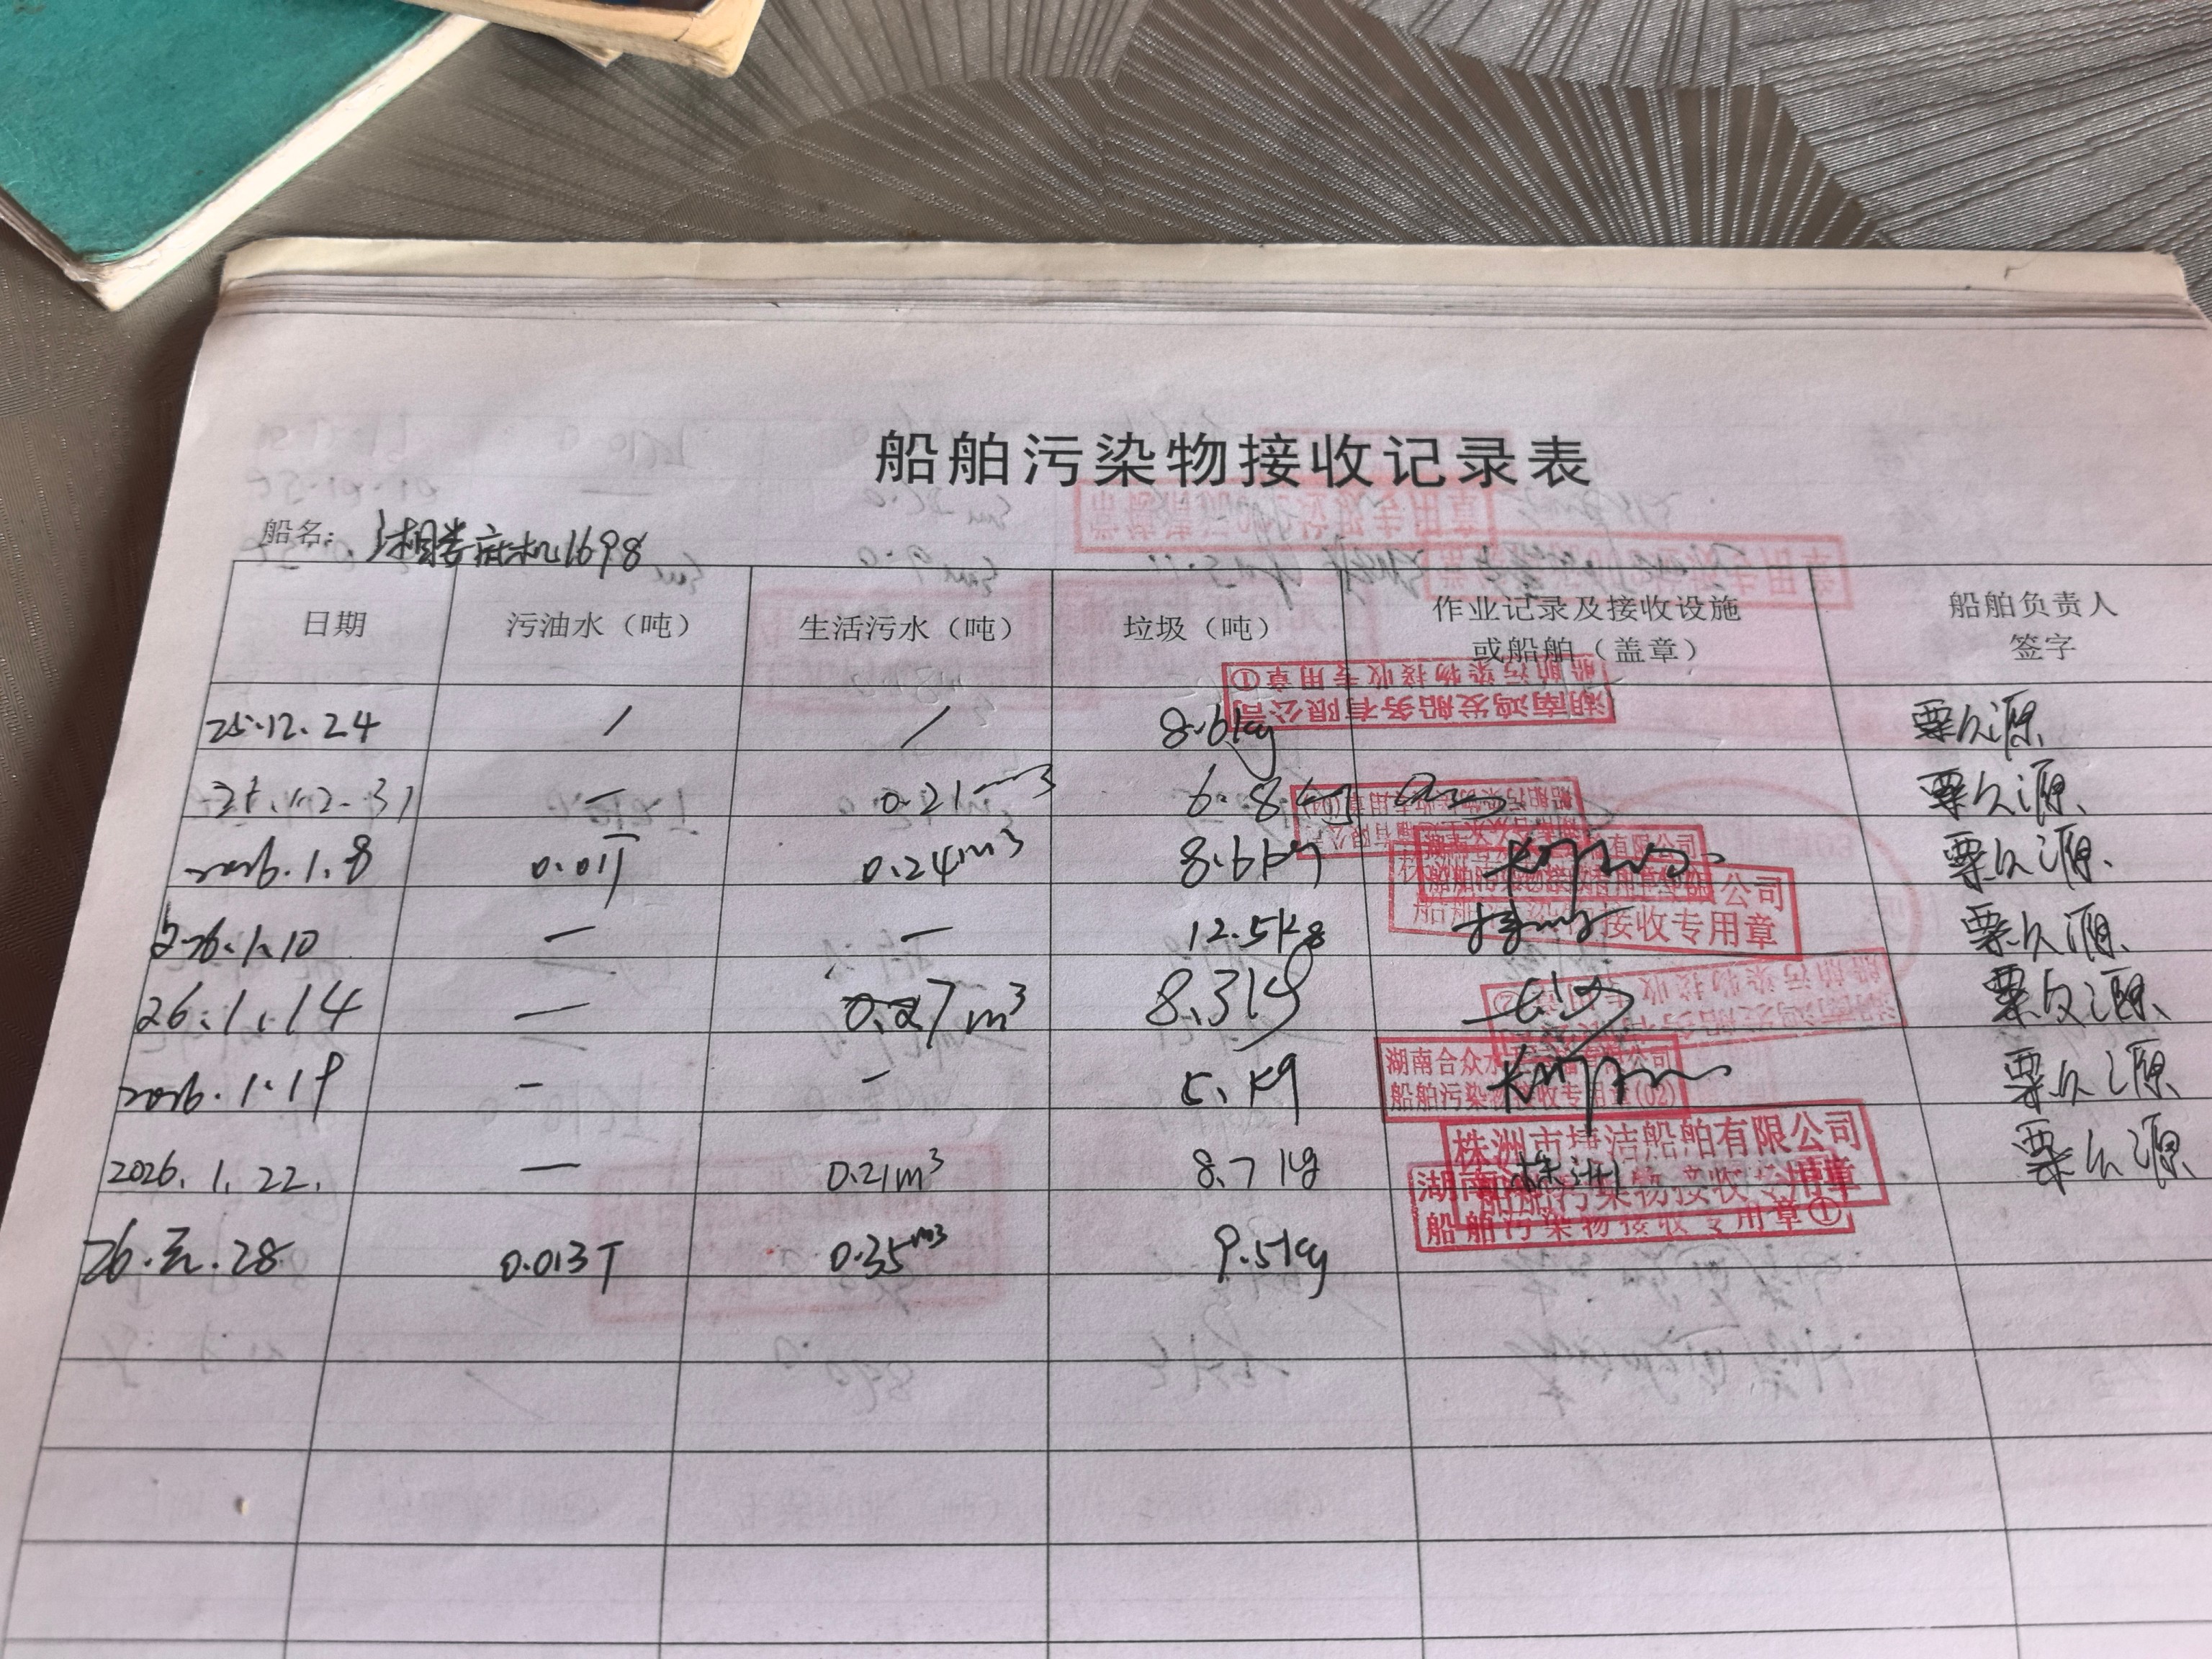 船舶污染物接收记录表
船名：湘娄底机1698
日期 污油水（吨） 生活污水（吨） 垃圾（吨） 作业记录及接收设施或船舶（盖章） 船舶负责人签字
湖南鸿发船务有限公司
船舶污染物接收专用章①
25.12.24 / / 8.6kg 粟久源
25.12.31 — 0.21m³ 6.8kg 粟久源
2026.1.8 0.01T 0.24m³ 8.6kg 粟久源
2026.1.10 — — 12.5kg 粟久源
公司
接收专用章
26.1.14 — 0.27m³ 8.3kg 粟久源
船舶污染物接收
2026.1.19 - - 5.kg 粟久源
湖南合众水 公司
船舶污染物接收专用章(02)
2026.1.22. — 0.21m³ 8.7kg 株洲 粟久源
株洲市搏洁船舶有限公司
船舶污染物接收专用章
湖南
船舶污染物接收专用章①
26.元.28 0.013T 0.35m³ 9.5kg